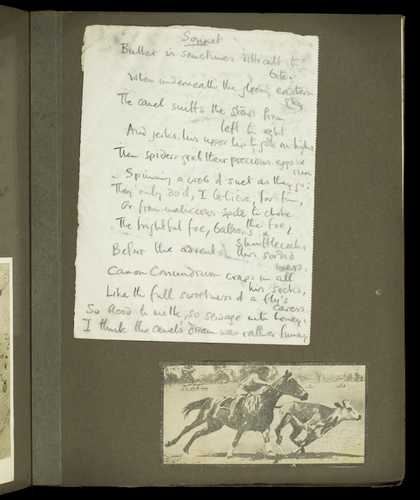 Sonnet
Butter is sometimes difficult to
bite:
When underneath the glowing eastern
sky
The camel sniffs the stones from
left to right
And jerks his upper lip to on high
Then spiders their precious
Spinning a web of suet as they go:
They only do it, I believe, for fun,
Or from malicious spite to choke
the foe,
The frightful foe, balloons &
shuttlecocks
Before the advent of this sordid
Canon Conundrum creeps in all
his socks,
Like the full sweetness of a fly's
caress.
So flood to milk, so sewage unto honey:
I think the camel's dream was rather funny